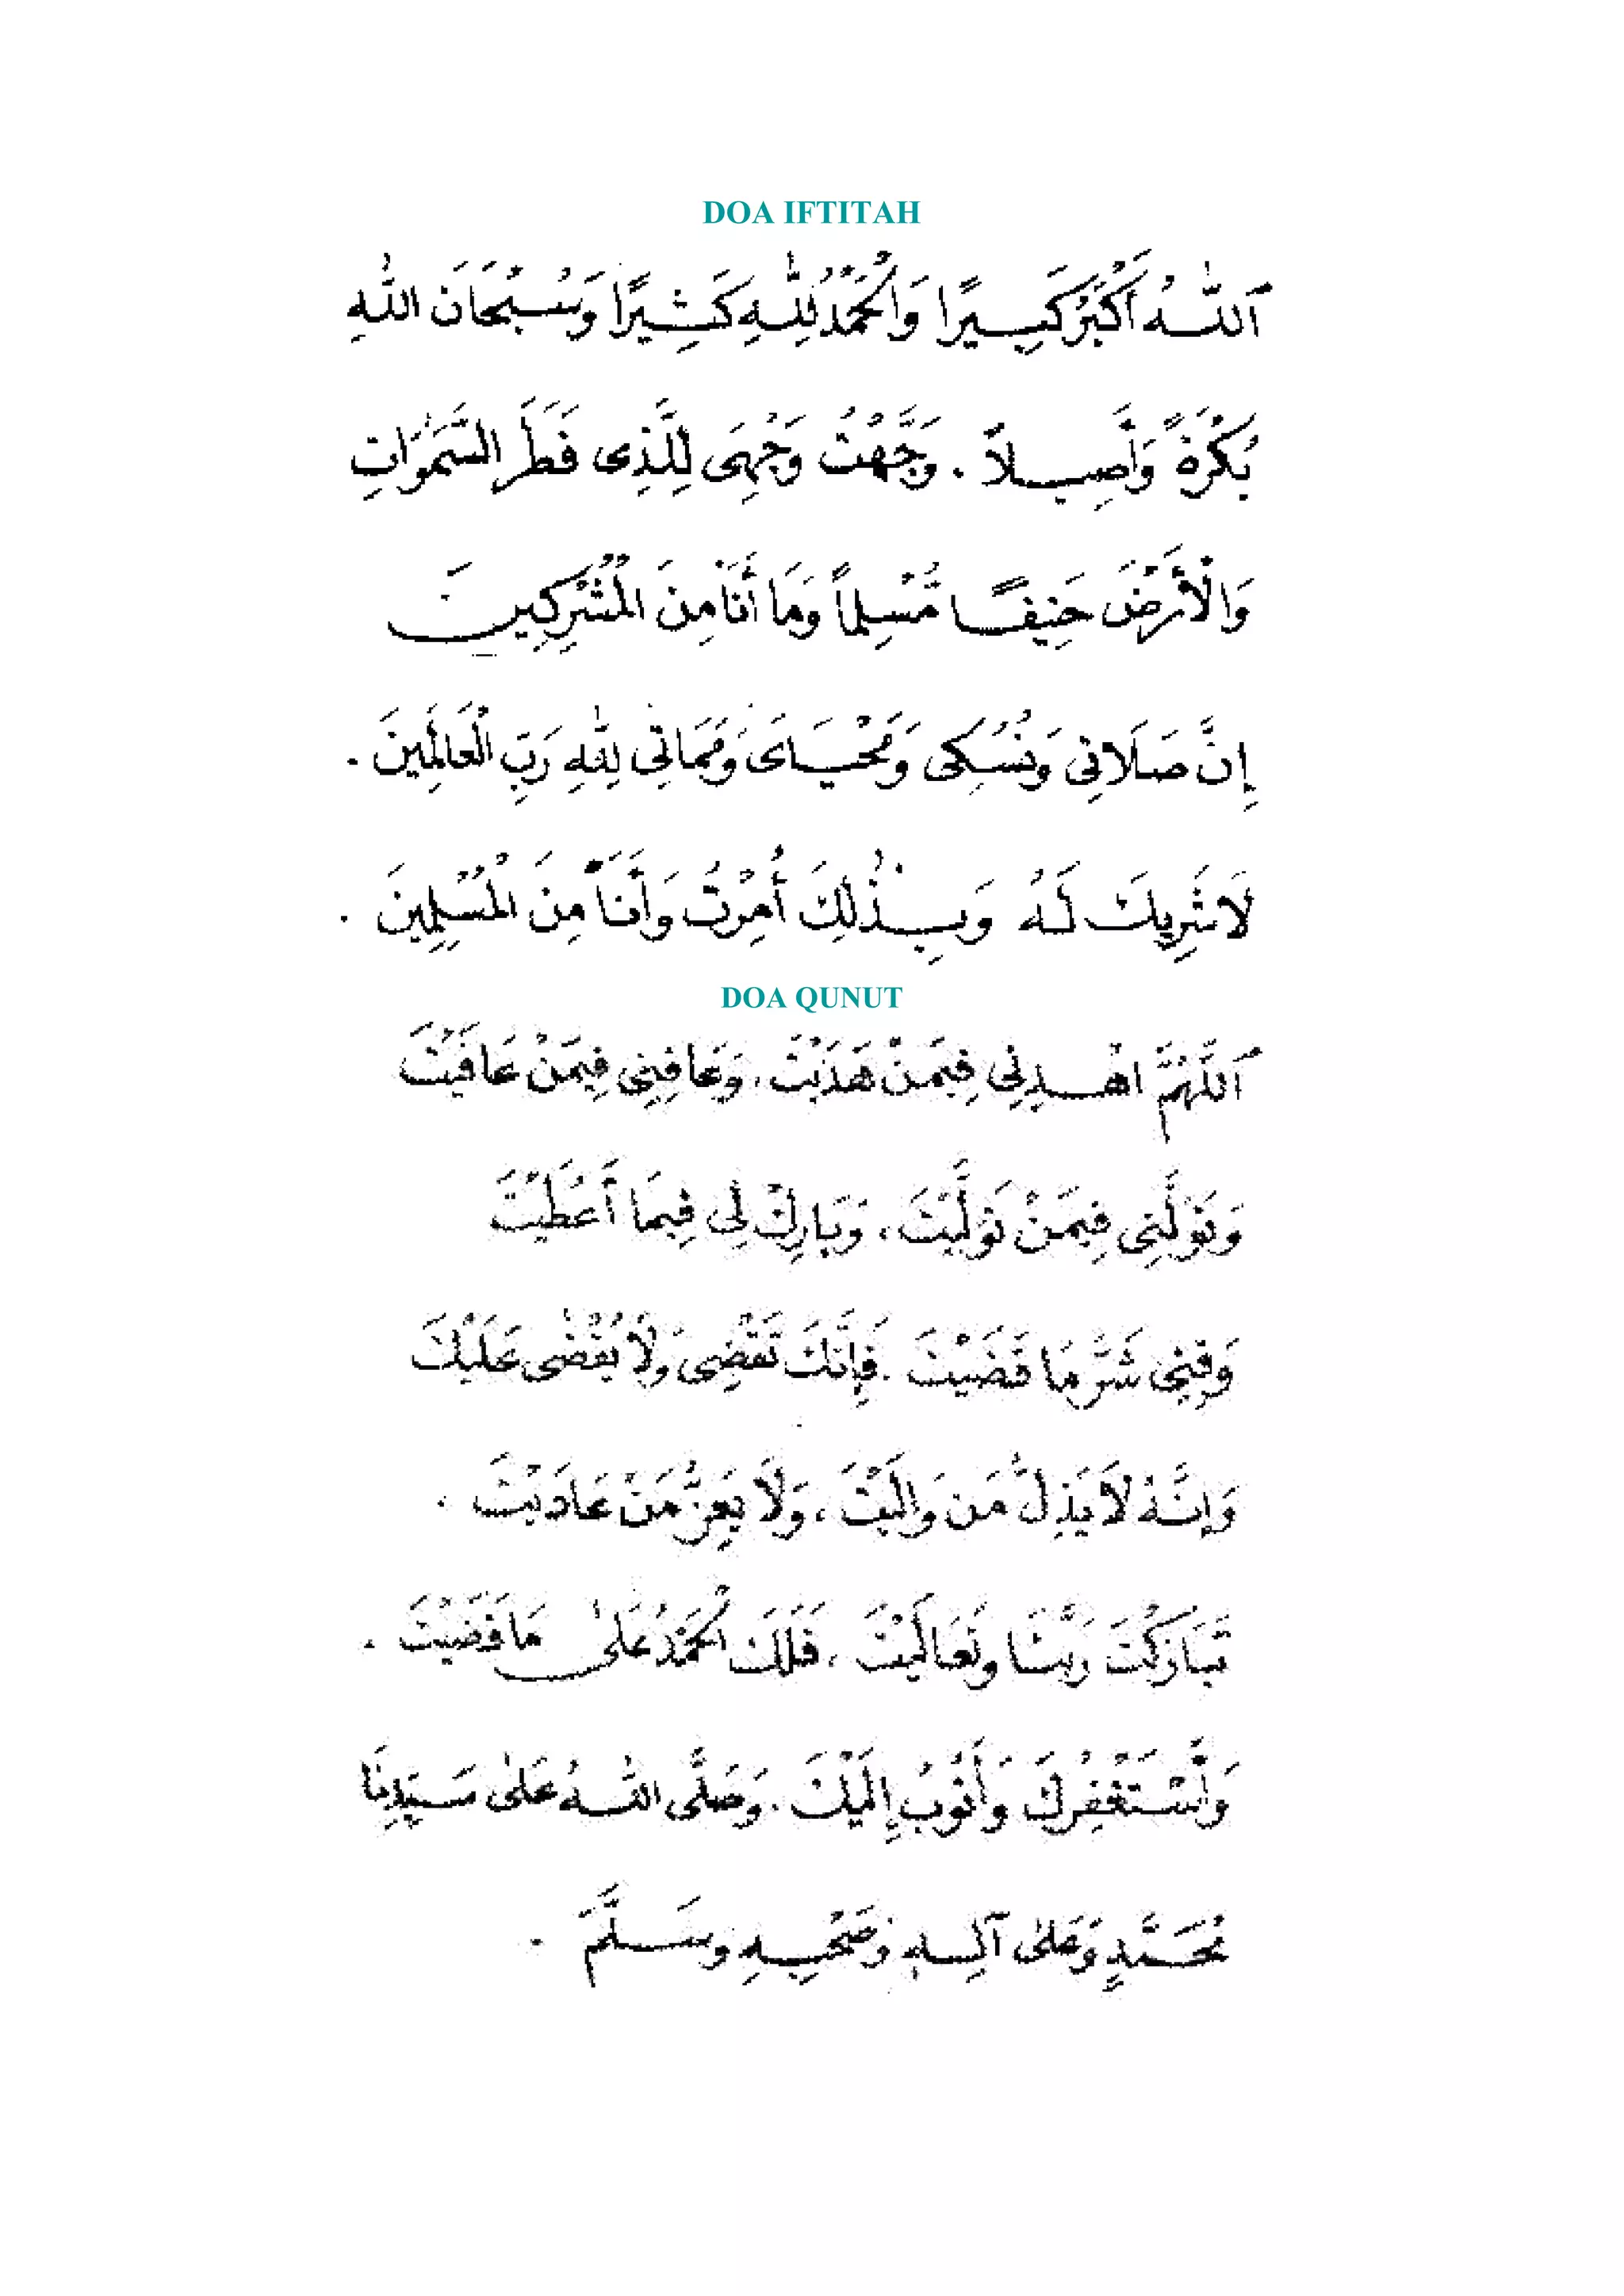 DOA IFTITAH
اَللّٰهُ اَكْبَرُ كَبِيرًا وَالْحَمْدُ لِلّٰهِ كَثِيرًا وَسُبْحَانَ اللّٰهِ
بُكْرَةً وَأَصِيلاً . وَجَّهْتُ وَجْهِيَ لِلَّذِى فَطَرَ السَّمٰوَاتِ
وَالْأَرْضَ حَنِيفًا مُّسْلِمًا وَمَا أَنَا مِنَ الْمُشْرِكِينَ
إِنَّ صَلَاتِى وَنُسُكِى وَمَحْيَاىَ وَمَمَاتِى لِلّٰهِ رَبِّ الْعَالَمِينَ .
لَا شَرِيكَ لَهُ وَبِذٰلِكَ أُمِرْتُ وَأَنَا مِنَ الْمُسْلِمِينَ .
DOA QUNUT
اَللّٰهُمَّ اهْدِنِى فِيمَنْ هَدَيْتَ ، وَعَافِنِى فِيمَنْ عَافَيْتَ
وَتَوَلَّنِى فِيمَنْ تَوَلَّيْتَ ، وَبَارِكْ لِى فِيمَا أَعْطَيْتَ
وَقِنِى شَرَّ مَا قَضَيْتَ . فَإِنَّكَ تَقْضِى وَلَا يُقْضٰى عَلَيْكَ
وَإِنَّهُ لَا يَذِلُّ مَن وَالَيْتَ ، وَلَا يَعِزُّ مَنْ عَادَيْتَ .
تَبَارَكْتَ رَبَّنَا وَتَعَالَيْتَ ، فَلَكَ الْحَمْدُ عَلٰى مَا قَضَيْتَ .
وَأَسْتَغْفِرُكَ وَأَتُوبُ إِلَيْكَ . وَصَلَّى اللّٰهُ عَلٰى سَيِّدِنَا
مُحَمَّدٍ وَعَلٰى آلِهِ وَصَحْبِهِ وَسَلَّمَ .